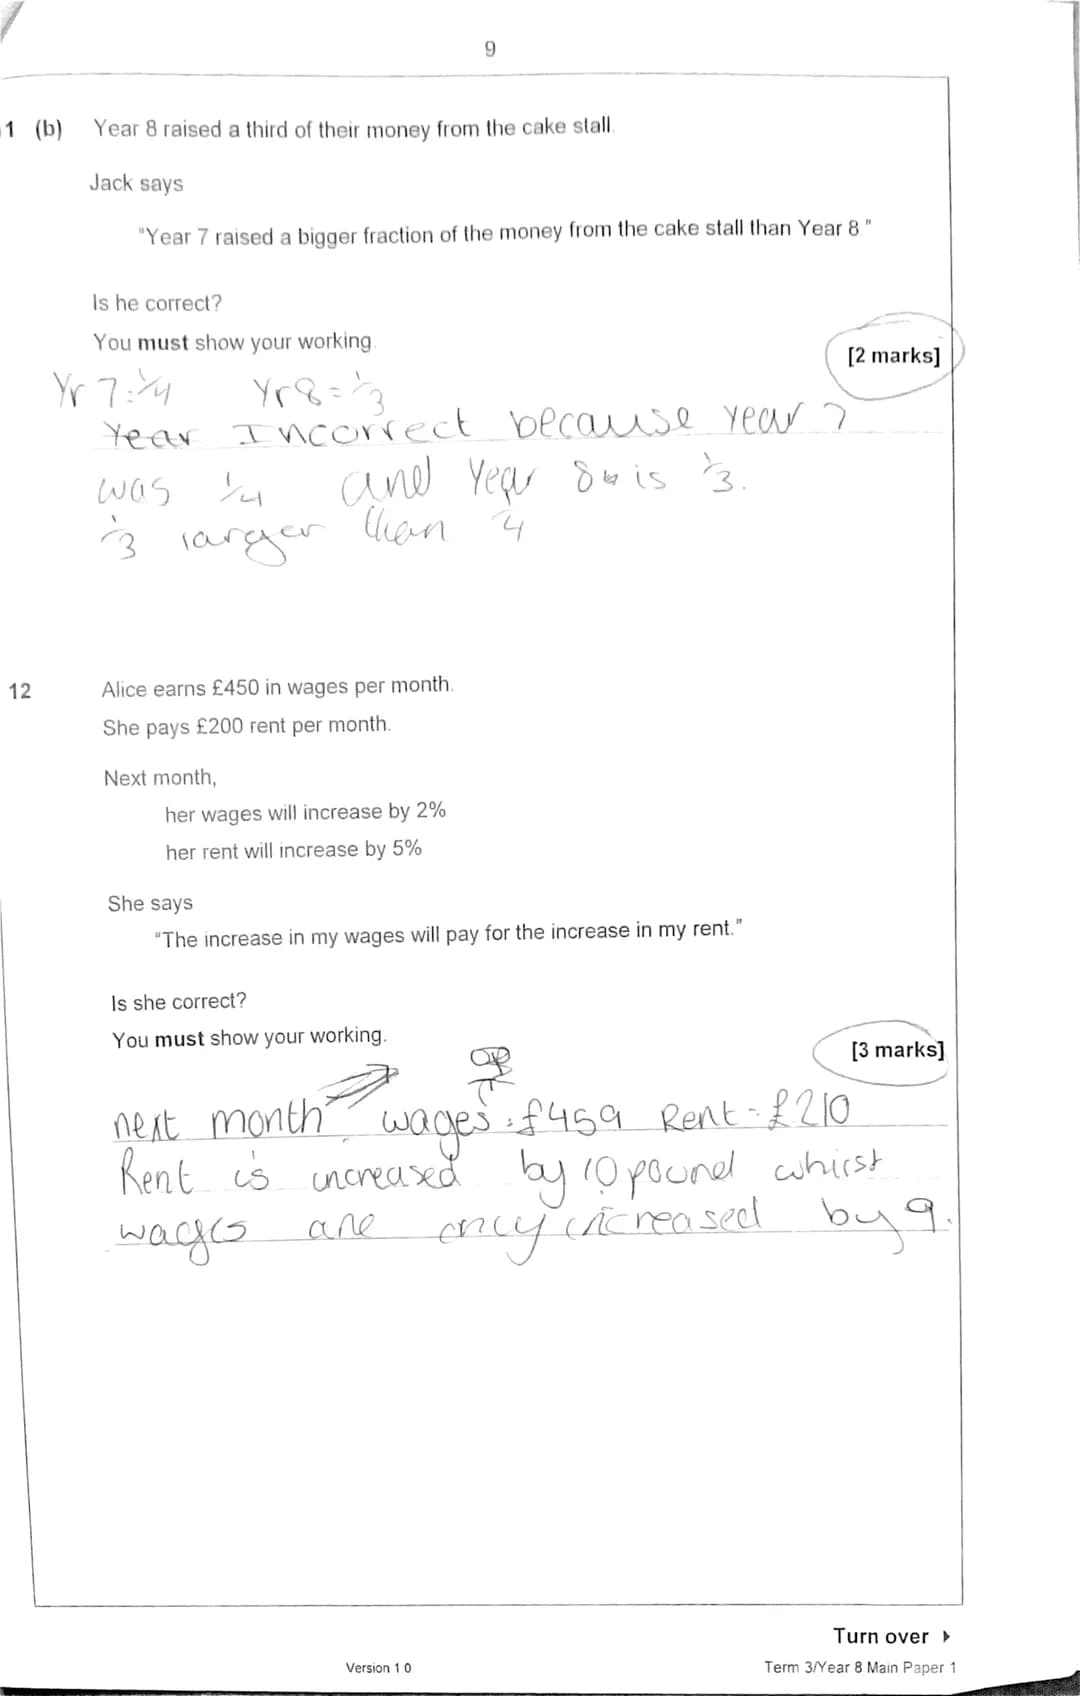 9
1 (b) Year 8 raised a third of their money from the cake stall.
Jack says
"Year 7 raised a bigger fraction of the money from the cake stall than Year 8."
Is he correct?
You must show your working.
[2 marks]
Yr 7: 1/4 Yr 8 = 1/3
Year Incorrect because year 7
was 1/4 and Year 8 is 1/3.
1/3 larger than 1/4
12 Alice earns £450 in wages per month.
She pays £200 rent per month.
Next month,
her wages will increase by 2%
her rent will increase by 5%
She says
"The increase in my wages will pay for the increase in my rent."
Is she correct?
You must show your working.
[3 marks]
next month wages: £459 Rent = £210
Rent is increased by 10 pound whirst
wages are only increased by 9.
Turn over
Version 1 0
Term 3/Year 8 Main Paper 1